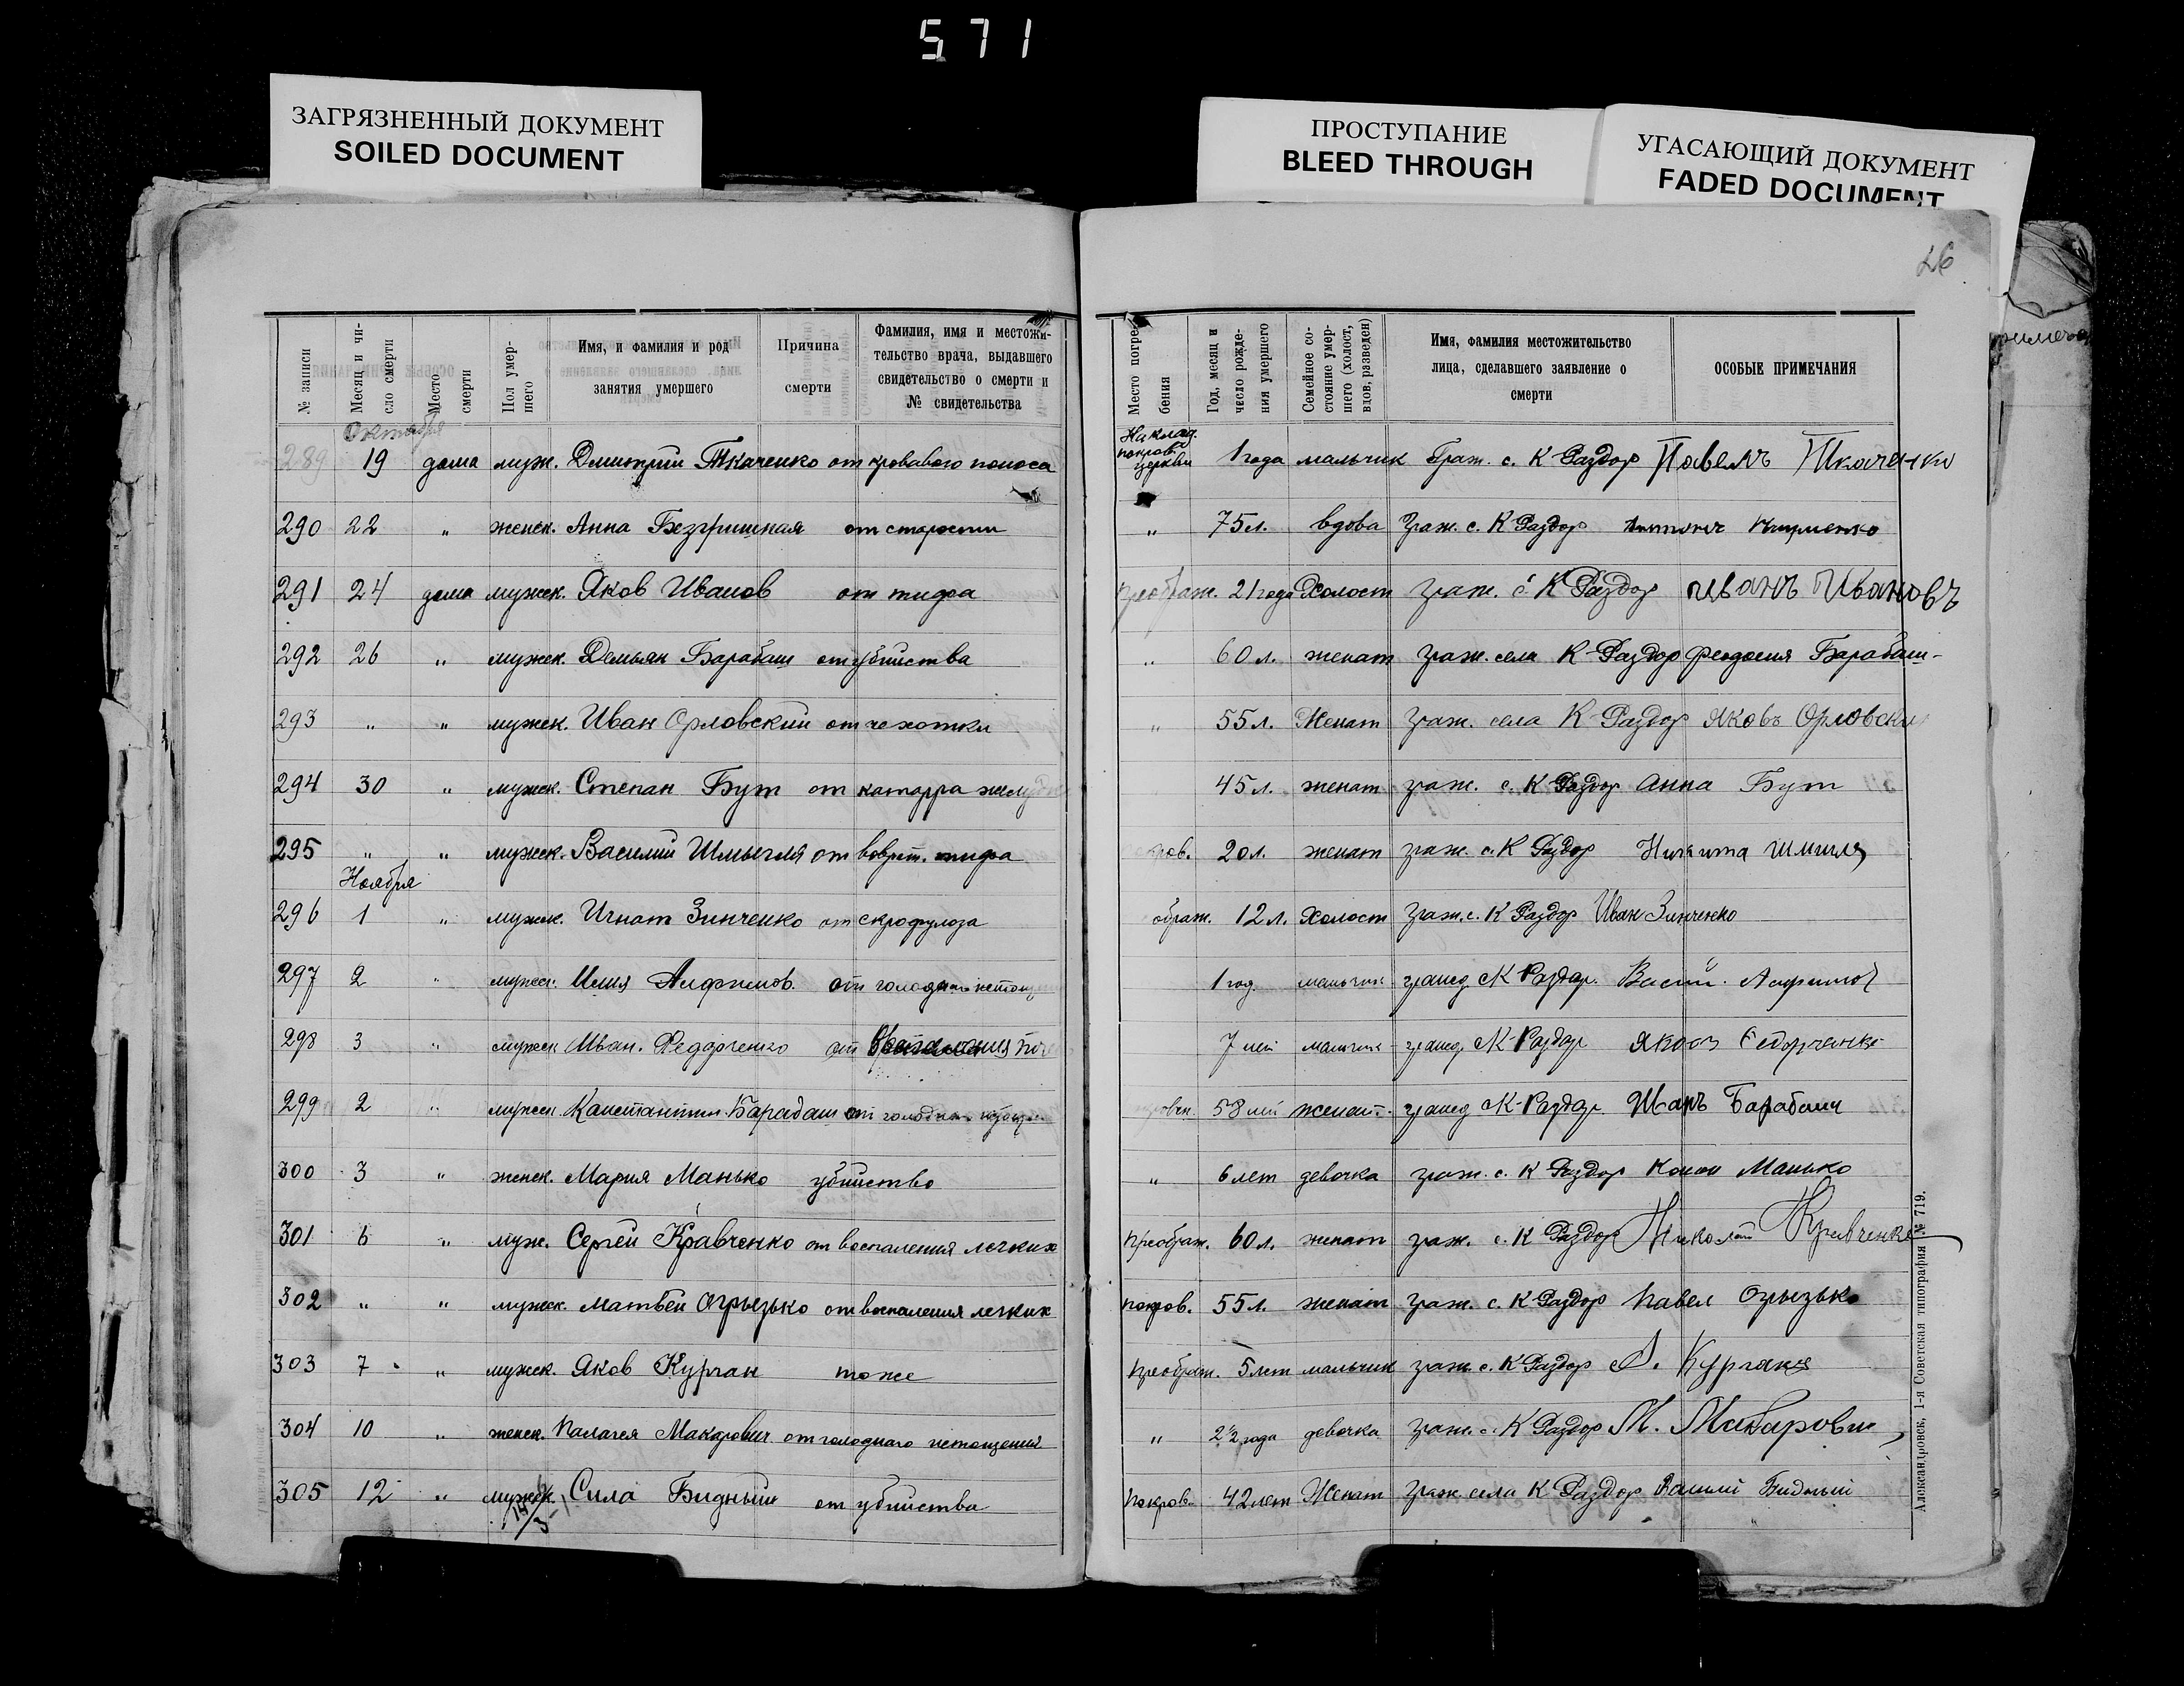 571
ЗАГРЯЗНЕННЫЙ ДОКУМЕНТ
SOILED DOCUMENT
ПРОСТУПАНИЕ
BLEED THROUGH
УГАСАЮЩИЙ ДОКУМЕНТ
FADED DOCUMENT
26
№ записи
Месяц и чи-
сло смерти
Место
смерти
Пол умер-
шего
Имя, и фамилия и род
занятия умершего
Причина
смерти
Фамилия, имя и местожи-
тельство врача, выдавшего
свидетельство о смерти и
№ свидетельства
Место погре
бения
Год, месяц и
число рожде-
ния умершего
Семейное со-
стояние умер-
шего (холост,
вдов, разведен)
Имя, фамилия местожительство
лица, сделавшего заявление о
смерти
ОСОБЫЕ ПРИМЕЧАНИЯ
Октября
289 19 дома муж. Дмитрий Ткаченко от кровавого поноса покров. церкви 1 года мальчик Граж. с. К Раздор Павелъ Ткаченко
290 22 " женск. Анна Безгришная от старости " 75 л. вдова Граж. с. К Раздор
291 24 дома мужск. Яков Иванов от тифа Преображ. 21 года Холост граж. с К Раздор Иванъ Ивановъ
292 26 " мужск. Демьян Барабаш от убийства " 60 л. женат граж. села К-Раздор Феодосия Барабаш-
293 " " мужск. Иван Орловский от чехотки " 55 л. Женат граж. села К-Раздор Яковъ Орловски
294 30 " мужск. Степан Бут от катарра желуд 45 л. женат граж. с. К Раздор Анна Бут
295 " " мужск. Василий Шмыгля от возврт. тифа ров. 20 л. женат граж. с. К Раздор Никита Шмигля
Ноября
296 1 " мужск. Игнат Зинченко от скрофулоза ображ. 12 л. Холост граж. с. К Раздор Иван Зинченко
297 2 " мужск. Илия Алфимов от голодн. истощ 1 год. мальчик гражд. с К-Раздор.
298 3 " мужск Иван. Федорченко от Воспаления поч 7 лет мальчик гражд. с К-Раздор Яковъ Федорченко
299 2 " мужск Константин Барабаш от голодн. истощ 58 лет женат. гражд с К-Раздор Иванъ Барабаш
300 3 " женск. Мария Манько убийство " 6 лет девочка граж. с. К Раздор Конон Манько
301 6 " муж. Сергей Кравченко от воспаления легких Преображ. 60 л. женат граж. с. К Раздор Николай Кравченко
302 " " мужск. Матвей Огрызько от воспаления легких покров. 55 л. женат граж. с. К Раздор Павел Огрызько
303 7 " мужск. Яков Курган тоже Преображ. 5 лет мальчик граж. с. К Раздор
304 10 " женск. Палагея Макарович от голодного истощения " 2 1/2 года девочка граж. с. К Раздор М. Макарович
305 12 " мужск. Сила Бидный от убийства Покров. 42 лет Женат Граж села К Раздор Бидный
Александровск, 1-я Советская типография № 719.